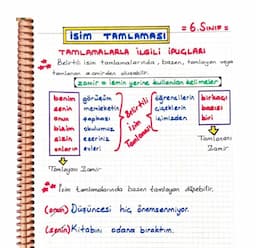 = 6.SINIF =
İSİM TAMLAMASI
TAMLAMALARLA İLGİLİ İPUÇLARI
Belirtili isim tamlamalarında, bazen, tamlayan veya
tamlanan zamirden oluşabilir.
zamir = ismin yerine kullanılan kelimeler
benim görüşüm
senin memleketin
onun şapkası
bizim okulumuz
sizin eseriniz
onların evleri
Belirtili
İsim
Tamlaması
öğrencilerin birkaçı
çiçeklerin bazısı
içimizden biri
Tamlayan Zamir
Tamlanan
Zamir
İsim tamlamalarında bazen tamlayan düşebilir.
(onun) Düşüncesi hiç önemsenmiyor.
(senin) Kitabını odana bıraktım.